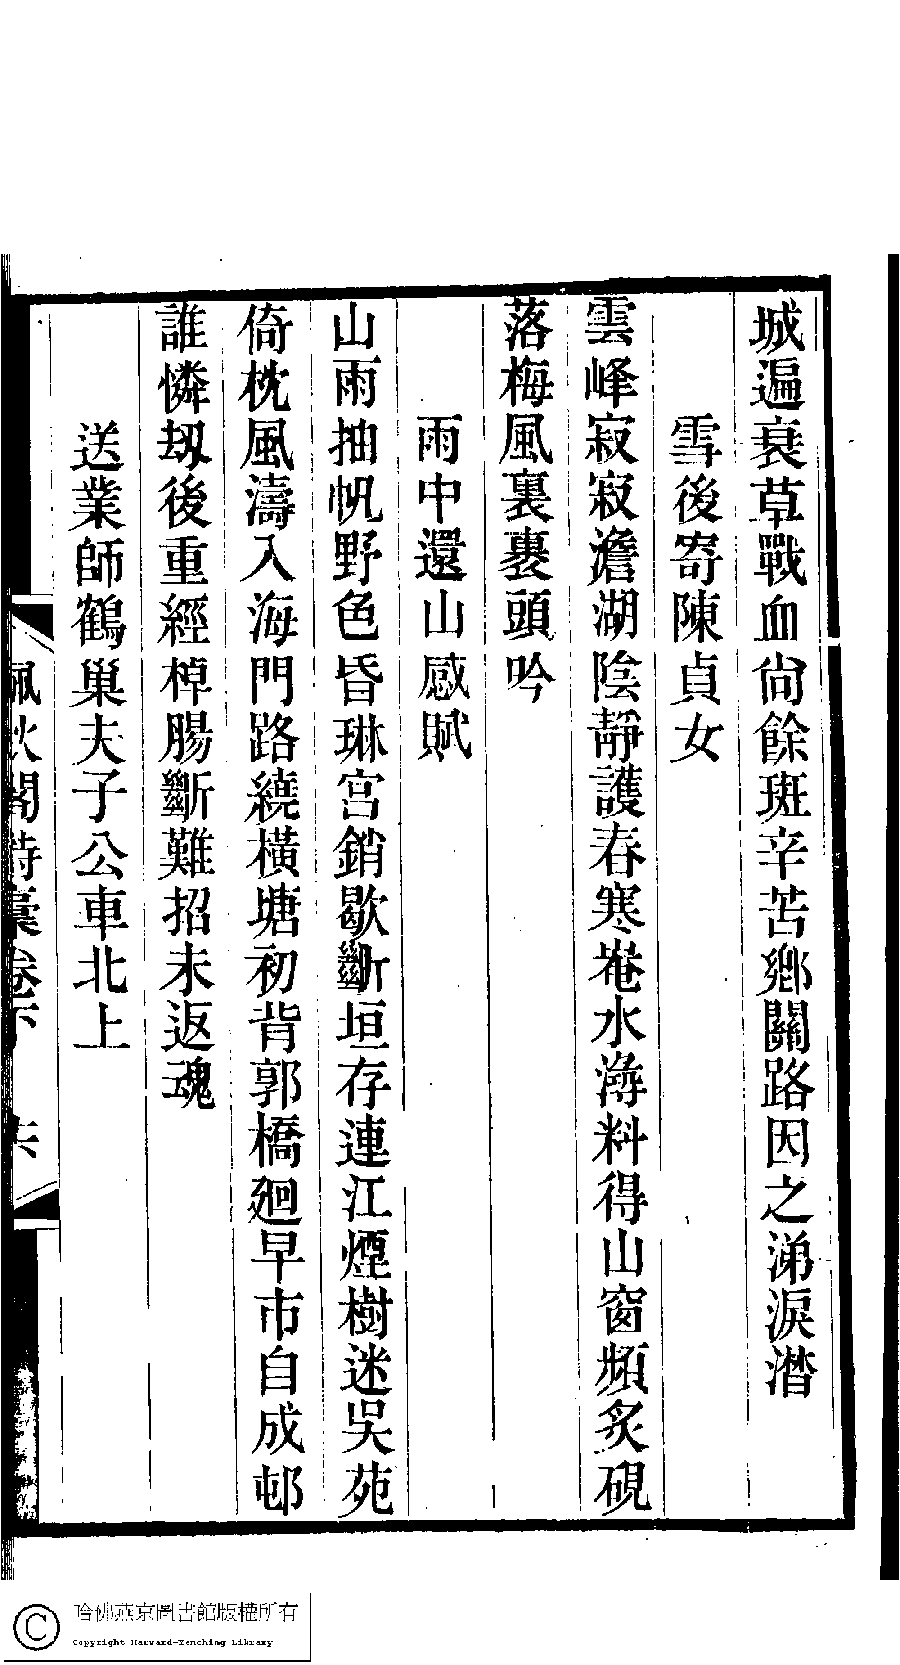 城遍衰草戰血尙餘班辛苦鄕關路因之涕淚潸
雪後寄陳貞女
雲峰寂寂澹湖陰靜護春寒菴水潯料得山窗頻炙硯
落梅風裏裹頭吟
雨中還山感賦
山雨抽帆野色昏琳宮銷歇斷垣存連江煙樹迷吳苑
倚枕風濤入海門路繞橫塘初背郭橋廻早市自成邨
誰憐刼後重經棹腸斷難招未返魂
送業師鶴巢夫子公車北上
佩秋閣詩稾卷下 六
哈佛燕京圖書館版權所有
Copyright Harvard-Yenching Library